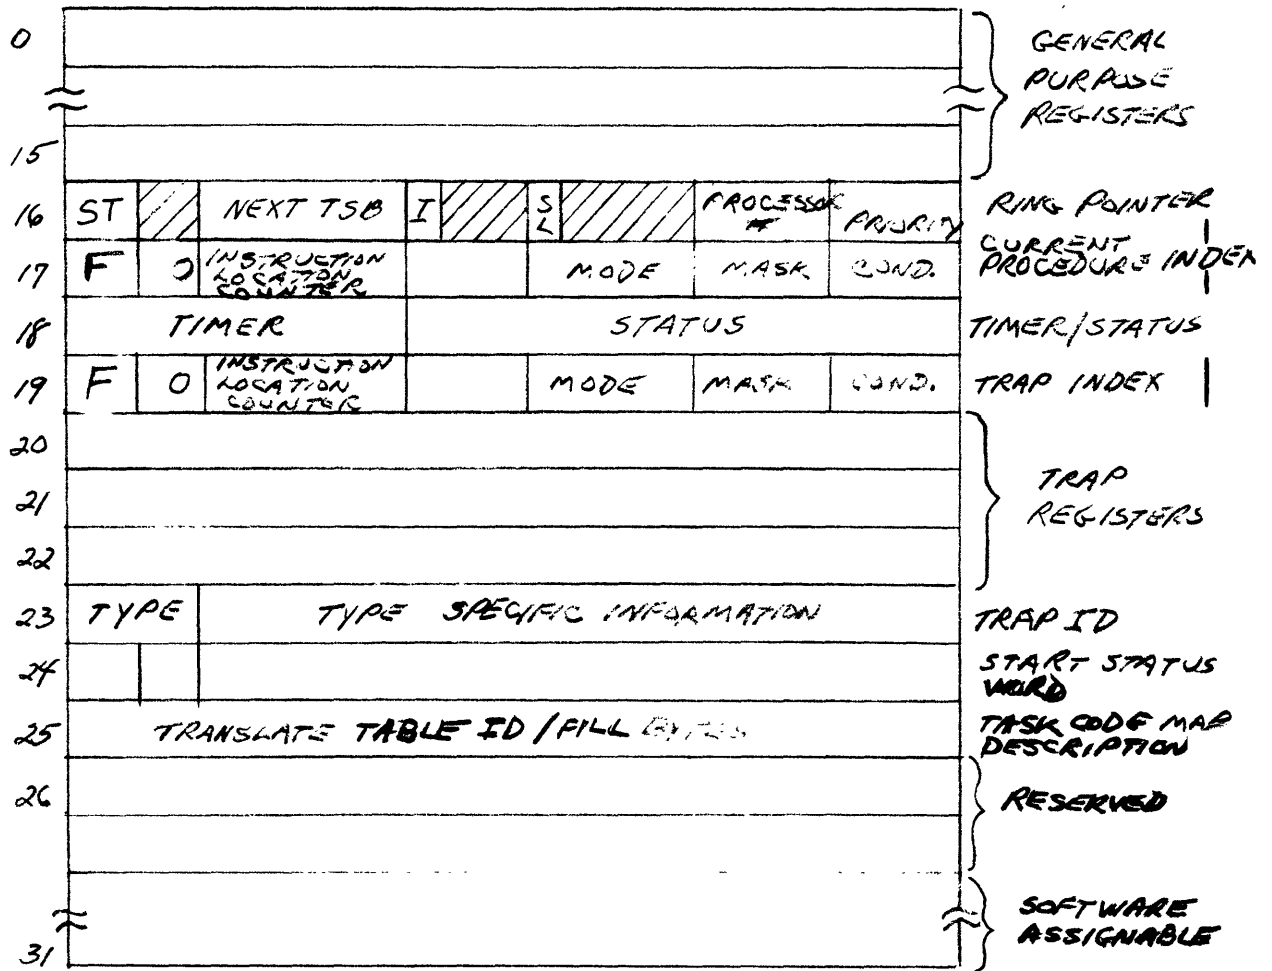 0
GENERAL
PURPOSE
REGISTERS
15
16 ST NEXT TSB I SL PROCESSOR # PRIORITY RING POINTER
17 F 0 INSTRUCTION LOCATION COUNTER MODE MASK COND. CURRENT PROCEDURE INDEX
18 TIMER STATUS TIMER/STATUS
19 F 0 INSTRUCTION LOCATION COUNTER MODE MASK COND. TRAP INDEX
20
21
TRAP
REGISTERS
22
23 TYPE TYPE SPECIFIC INFORMATION TRAP ID
24 START STATUS WORD
25 TRANSLATE TABLE ID / FILL BYTES TASK CODE MAP DESCRIPTION
26 RESERVED
SOFTWARE
ASSIGNABLE
31